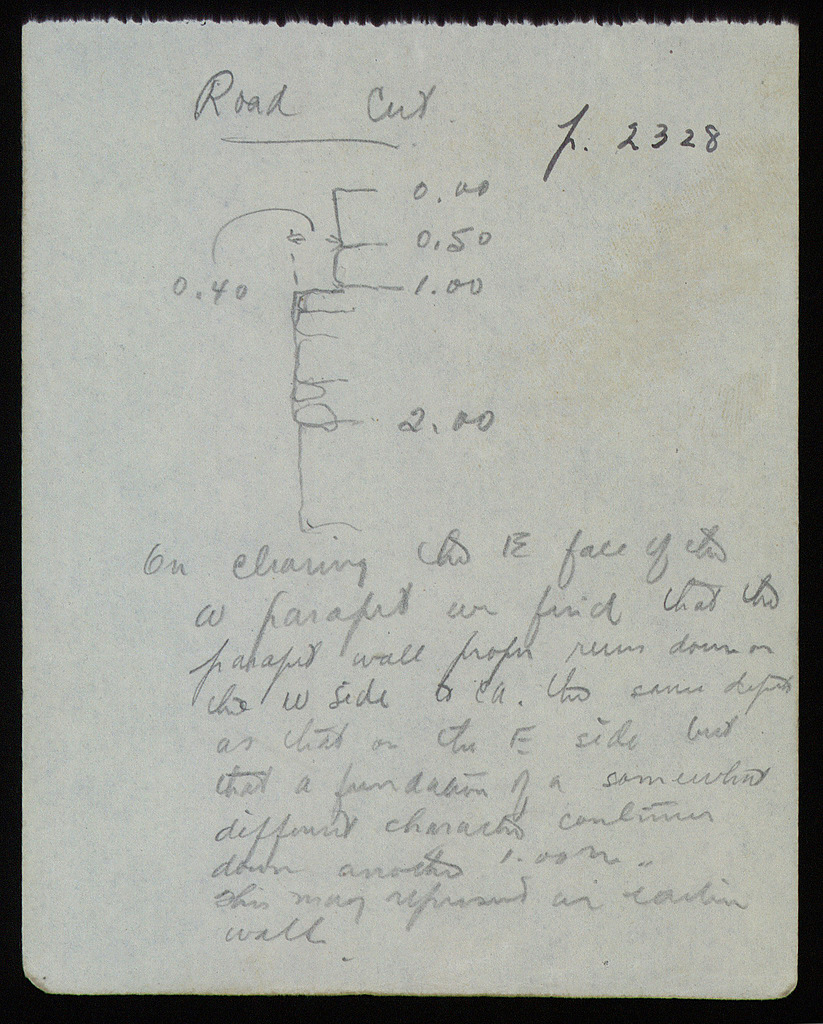 Road Cut
p. 2328
0.00
0.50
0.40
1.00
2.00
On clearing the E face of the
W parapet we find that the
parapet wall proper runs down on
the W side to ca. the same depth
as that on the E side but
that a foundation of a somewhat
different character continues
down another 1.00 m.
This may represent an earlier
wall.